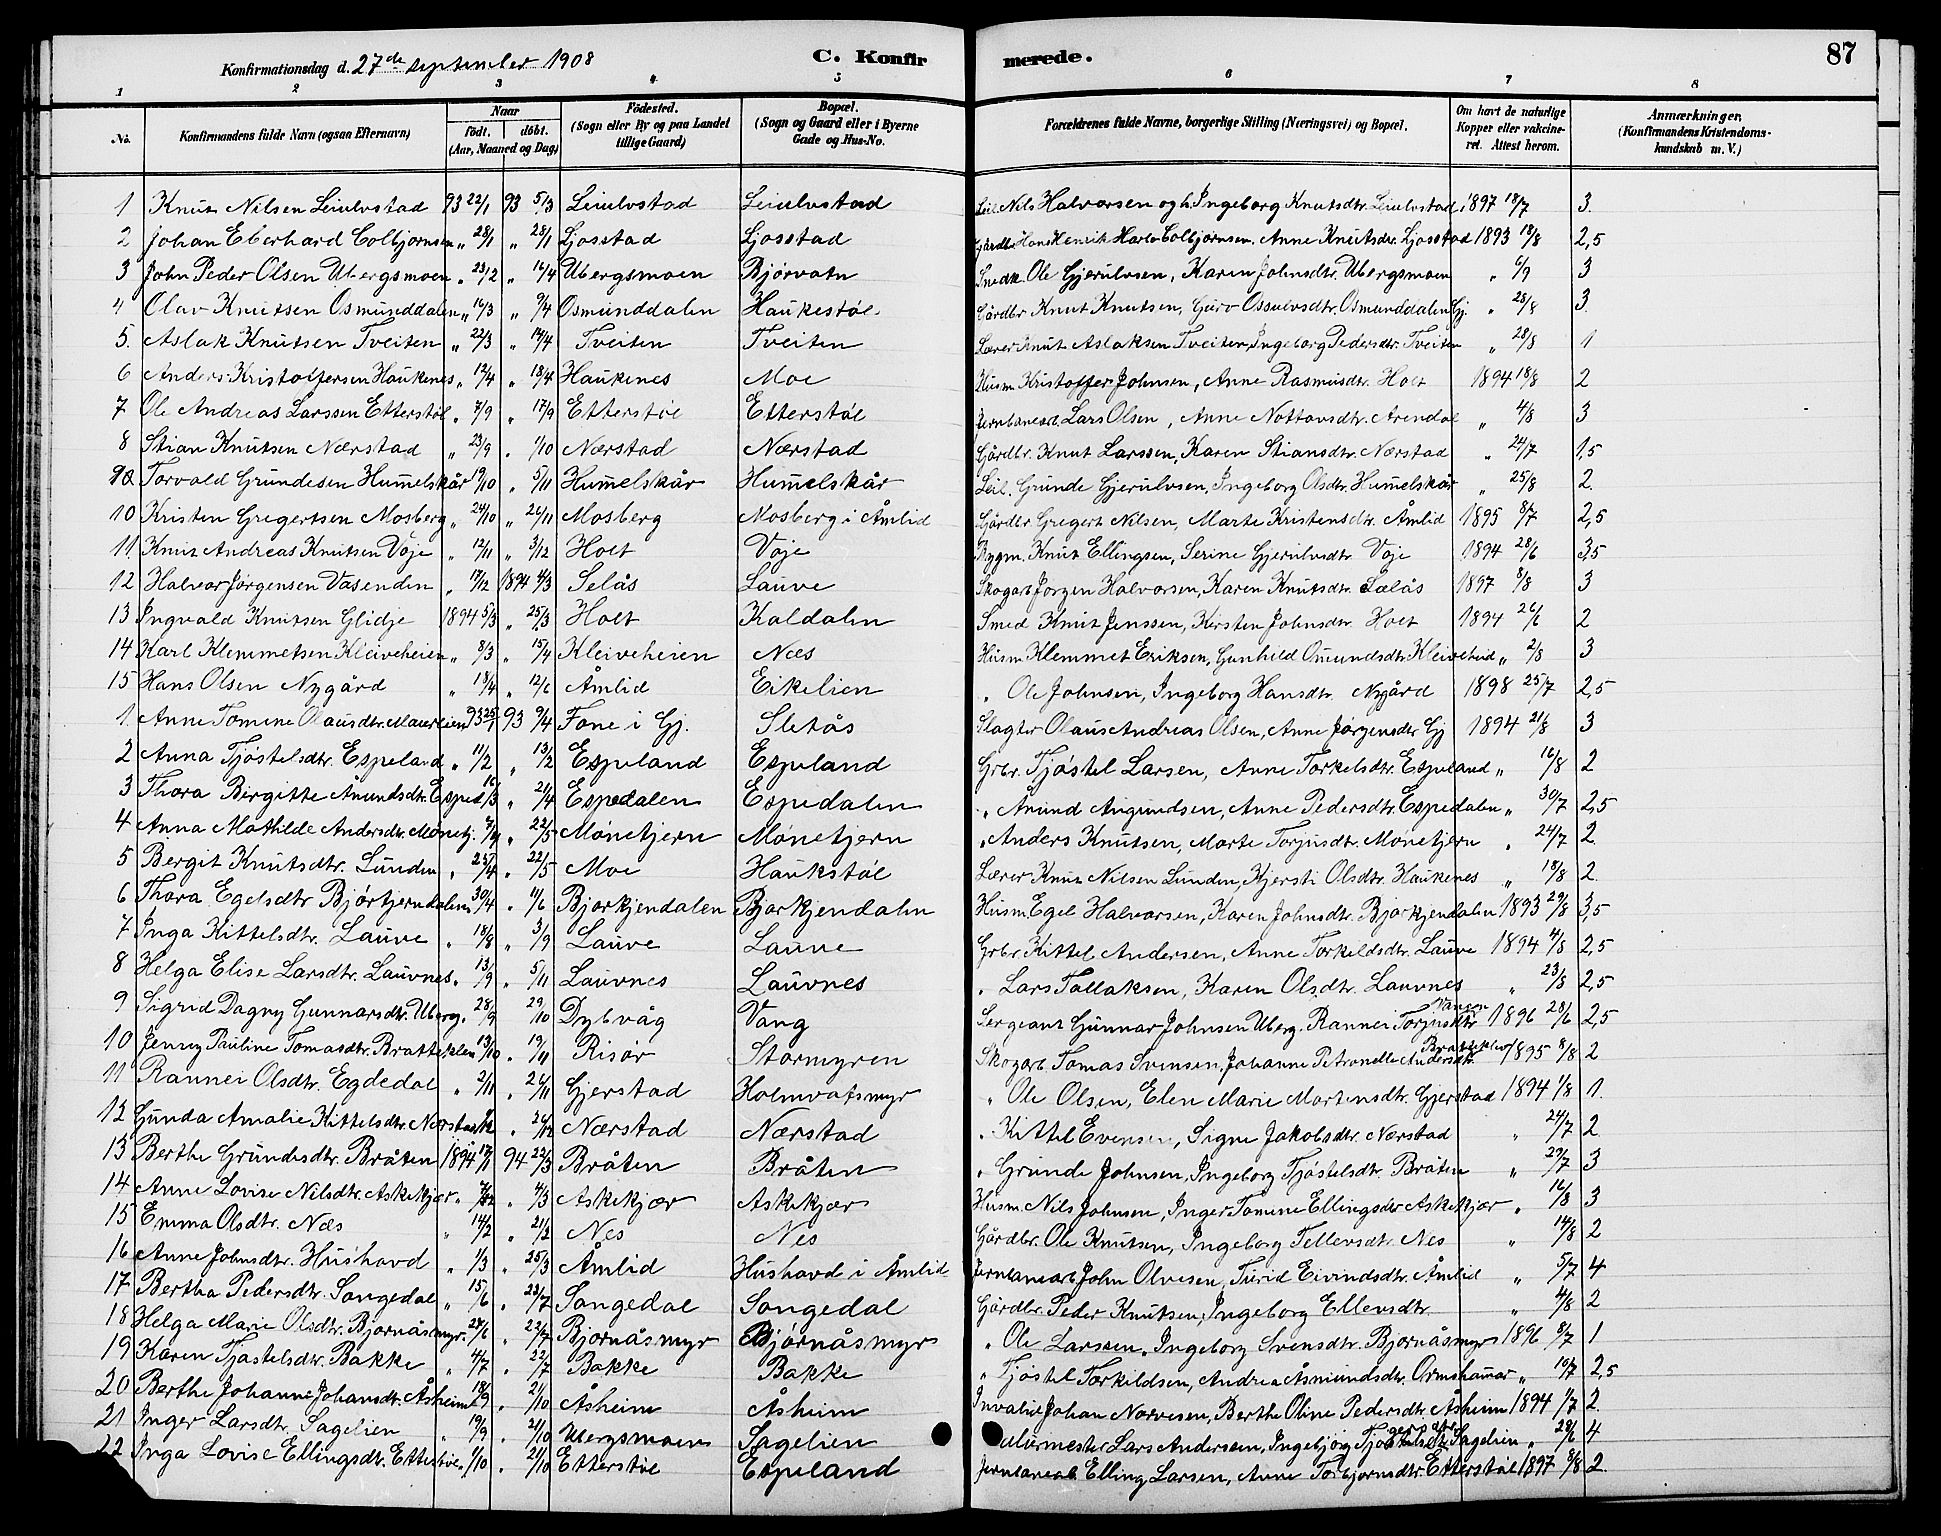 Konfirmationsdag d. 27de september 1908 C. Konfir merede. 87
1 2 3 4 5 6 7 8
No. Konfirmandens fulde Navn (ogsaa Efternavn) Naar födt. döbt. (Aar, Maaned og Dag) Födested. (Sogn eller By og paa Landet tillige Gaard) Bopæl. (Sogn og Gaard eller i Byerne Gade og Hus-No. Forældrenes fulde Navne, borgerlige Stilling (Næringsvei) og Bopæl. Om havt de naturlige Kopper eller vakcineret. Attest herom. Anmærkninger, (Konfirmandens Kristendomskundskab m. V.)
1 Knut Nilsen Leiulvstad 93 22/1 93 5/3 Leiulvstad Leiulvstad Leil. Nils Halvorsen og h. Ingeborg Knutsdtr. Leiulvstad 1897 18/7 3.
2 Johan Eberhard Colbjørnsen „ 28/1 „ 28/1 Ljosstad Ljosstad Gårdbr. Hans Henrik Harbo Colbjørnsen. Anne Knutsdr. Ljosstad 1893 18/8 2,5
3 John Peder Olsen Ubergsmoen „ 23/2 „ 16/4 Ubergsmoen Bjørvatn Smedk. Ole Gjerulvsen, Karen Johnsdtr. Ubergsmoen „ 6/9 3
4 Olav Knutsen Osmunddalen „ 16/3 „ 9/4 Osmunddalen Haukestøl. Gårdbr Knut Knutsen, Guro Ossulvsdtr. Osmunddalen Gj. „ 28/8 3.
5. Aslak Knutsen Tveiten „ 22/3 „ 14/4 Tveiten Tveiten Lærer Knut Aslaksen Tveiten, Ingeborg Pedersdtr. Tveiten „ 28/8 1
6 Anders Kristoffersen Haukenes „ 12/4 „ 18/4 Haukenes Moe Husm. Kristoffer Johnsen, Anne Rasmusdtr. Holt 1894 18/8 2
7 Ole Andreas Larssen Etterstøl „ 7/9 „ 17/9 Etterstøl Etterstøl Jernbanearb. Lars Olsen, Anne Nottovsdtr. Arendal „ 4/8 3
8 Stian Knutsen Nærstad „ 23/9 „ 1/10 Nærstad Nærstad Gårdbr. Knut Larssen, Karen Stiansdtr. Nærstad „ 24/7 1,5
Torvald Grundesen Humelskår 19/10 „ 5/11 Humelskår Humelskår Leil. Grunde Gjerulvsen, Ingeborg Olsdtr. Humelskår „ 25/8 2.
10 Kristen Gregertsen Mosberg „ 24/10 „ 26/11 Mosberg Mosberg i Åmlid Gårdbr Gregert Nilsen, Marte Kristensdtr. Åmlid 1895 8/7 2,5
11 Knut Andreas Knutsen Voje „ 12/11 „ 3/12 Holt Voje Bygm. Knut Ellingsen, Serine Gjerulvsdtr. Voje 1894 28/6 3,5
12 Halvor Jørgensen Vasenden „ 17/12 1894 4/3 Selås Lauve Skogarb Jørgen Halvorsen, Karen Knutsdtr. Selås 1897 8/8 3
13 Ingvald Knutsen Glidje 1894 5/3 „ 25/3 Holt Kaldalen Smed Knut Jenssen, Kirsten Johnsdtr. Holt 1894 26/6 2
14 Karl Klemmetsen Kleiveheien „ 8/3 „ 15/4 Kleiveheien Næs Husm. Klemmet Eriksen, Gunhild Omundsdtr Kleiveheid „ 2/8 3
15 Hans Olsen Nygård „ 18/4 „ 12/6 Åmlid Eikelien „ Ole Johnsen, Ingeborg Hansdtr. Nygård 1898 25/7 2,5
1. Anne Tomine Olausdtr. Maurlien 93 25/1 93 9/4 Fone i Gj. Sletås Slagter Olaus Andreas Olsen, Anne Jørgensdtr Gj 1894 21/8 3
2 Anna Tjøstelsdtr. Espeland „ 11/2 „ 13/2 Espeland Espeland Grbr. Tjøstel Larsen, Anne Torkelsdtr. Espeland „ 16/8 2
3 Thora Birgitte Ånundsdtr. Esped. 16/3 „ 2/4 Espedalen Espedalen „ Ånund Angundsen, Anne Pedersdtr. Espedalen „ 30/7 2,5
4 Anna Mathilde Andersdtr. Mønetj. 4/4 „ 22/5 Mønetjern Mønetjern „ Anders Knutsen, Marte Torjusdtr. Mønetjern „ 24/7 2.
5 Bergit Knutsdtr. Lunden „ 23/4 „ 22/5 Moe Haukstøl Lærer Knut Nilsen Lunden, Kjersti Olsdtr. Haukenes „ 18/8 2.
6 Thora Egelsdtr Bjørtjerndalen „ 30/4 „ 11/6 Bjorkjendalen Bjorkjendalen Husm. Egel Halvorsen, Karen Johnsdtr. Bjorkjendalen 1893 29/8 3,5
7 Inga Kittelsdtr. Lauve „ 18/8 „ 3/9 Lauve Lauve Grbr. Kittel Andersen, Anne Torkildsdtr. Lauve 1894 4/8 2,5
8 Helga Elise Larsdtr. Lauvnes „ 13/9 „ 5/11 Lauvnes Lauvnes „ Lars Tallaksen, Karen Olsdtr. Lauvnes „ 23/8 2,5
9 Sigrid Dagny Gunnarsdtr. Uberg. 28/9 29/10 Dybvåg Vang Sergeant Gunnar Johnsen Uberg. Rannei Torjusdtr 1896 28/6 2,5
10 Jenny Pauline Tomasdtr. Bratteklev 13/10 „ 19/11 Risør Stormyren Skogarb. Tomas Svensen, Johanne Petronelle Andersdtr. Bratteklev 1895 8/8 2
11 Rannei Olsdtr. Egdedal „ 2/11 „ 26/11 Gjerstad Holmvatsmyr „ Ole Olsen, Elen Marie Mortensdtr. Gjerstad 1894 1/8 1.
12 Gunda Amalie Kittelsdtr. Nærstad „ 26/12 Nærstad Nærstad „ Kittel Evensen, Signe Jakobsdtr. Nærstad „ 24/7 2.
13 Berthe Grundesdtr. Bråten 1894 17/1 94 22/3 Bråten Bråten „ Grunde Johnsen, Ingeborg Tjøstelsdtr. Bråten „ 29/7 3
14 Anne Lovise Nilsdtr. Askekjær „ 7/2 „ 4/3 Askekjær Askekjær Husm. Nils Johnsen, Inger Tomine Ellingsdtr Askekjær „ 16/8 3
15 Emma Olsdtr. Næs „ 14/2 „ 21/2 Nes Nes Gårdbr. Ole Knutsen, Ingeborg Tellevsdtr. Nes „ 14/8 2
16 Anne Johnsdtr. Hushovd „ 1/3 „ 25/3 Åmlid Hushovd i Åmlid Jernbanearb. John Olvesen, Turid Eivindsdtr. Åmlid „ 5/7 4
17 Bertha Pedersdtr. Songedal „ 15/6 „ 22/7 Songedal Songedal Gårdbr. Peder Knutsen, Ingeborg Ellevsdtr. „ 4/8 2
18 Helga Marie Olsdtr. Bjornåsmyr. 24/6 „ 22/7 Bjornåsmyr Bjørnåsmyr „ Ole Larssen, Ingeborg Svensdtr. Bjornåsmyr 1896 8/7 1
19 Karen Tjøstelsdtr. Bakke „ 4/7 „ 22/7 Bakke Bakke „ Tjøstel Torkildsen, Andrea Åsmundsdtr. Ormshamar „ 10/7 2,5
20 Berthe Johanne Johansdtr. Åsheim 18/9 „ 21/10 Åsheim Åsheim Invalid Johan Norvesen, Berthe Oline Pedersdtr. Åsheim 1894 1/7 2.
21 Inger Larsdtr. Sagelien „ 19/9 „ 21/10 Ubergsmoen Sagelien Murmester Lars Anderssen, Ingebjørg Sagelien „ 28/6 4
22 Inga Lovise Ellingsdtr. Etterstøl „ 1/10 „ 21/10 Etterstøl Espeland Jernbanearb. Elling Larsen, Anne Torbjornsdtr. Etterstøl 1897 8/8 2.